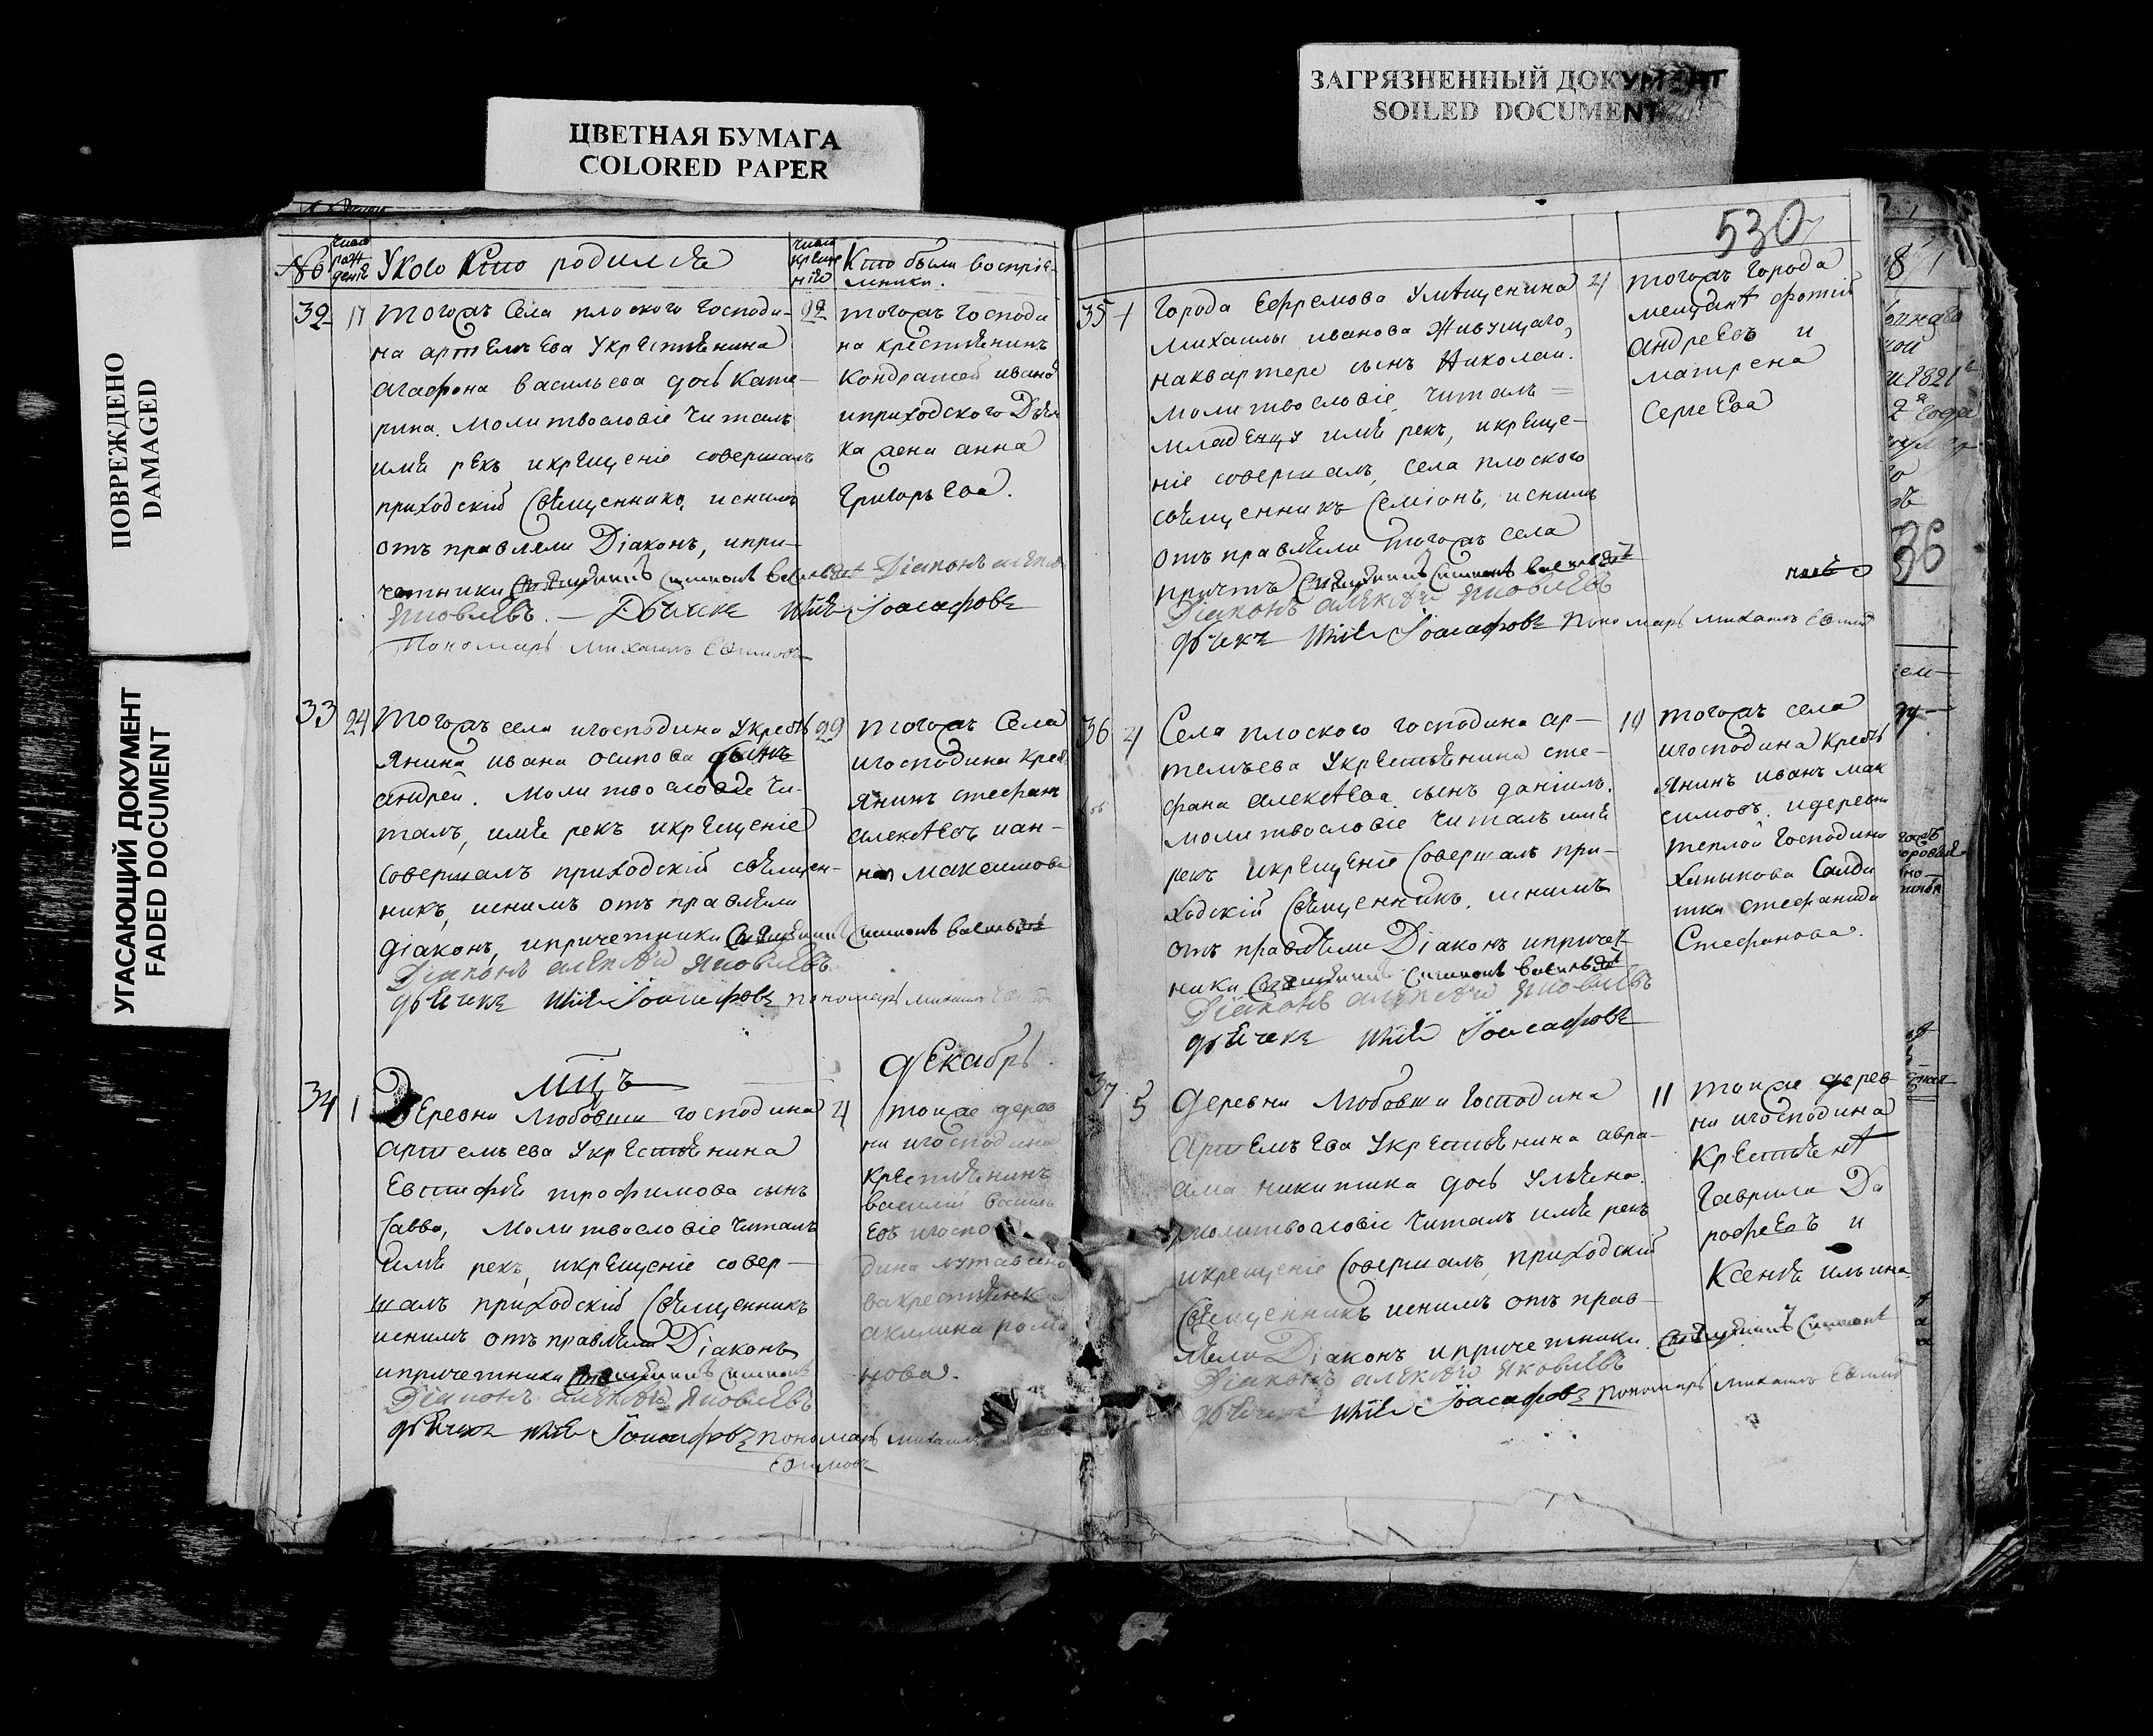 ЦВЕТНАЯ БУМАГА
COLORED PAPER
ЗАГРЯЗНЕННЫЙ ДОКУМЕНТ
SOILED DOCUMENT
ПОВРЕЖДЕНО
DAMAGED
УГАСАЮЩИЙ ДОКУМЕНТ
FADED DOCUMENT
№ число рождения У кого кто родился число крещения Кто были воспріемники.
32 17 Тогожъ села плоского господи-
на артемьева Укрестьянина
агафона васильева дочь Кате-
рина. Молитвословіе читалъ
имя рекъ икрещеніе совершалъ
приходскій священникъ, иснимъ
отъправляли Діаконъ, ипри-
четники Священникъ Симионъ Васильевъ Діаконъ алексѣй
Яковлевъ. — Дьячекъ Илія Іоасафовъ
Пономарь Михаилъ Ефимовъ
22 тогожъ господи
на крестьянинъ
Кондратей ивано
иприходского Дья
ка жена анна
Григорьева.
33 24 Тогожъ села игосподина Укресть
янина ивана осипова сынъ
андрей. Молитвословіе чи-
талъ, имя рекъ икрещеніе
совершалъ приходскій священ-
никъ, иснимъ отъправляли
діаконъ, ипричетники Священникъ Симионъ Васильевъ
Діаконъ алексѣй Яковлевъ.
дьячекъ Илія Іоасафовъ пономарь михаилъ
29 тогожъ села
игосподина крес
янинъ стефанъ
алексѣевъ иан-
на максимова
мцъ декабрь.
34 1 Деревни Любовши господина
Артемьева Укрестьянина
Евстифія трофимова сынъ
Савва, Молитвословіе читалъ
имя рекъ, икрещеніе совер-
шалъ приходскій священникъ
иснимъ отъправляли Діаконъ
ипричетники Священникъ Симионъ
Діаконъ алексѣй Яковлевъ
дьячекъ Илія Іоасафовъ пономарь михаилъ
Ефимовъ
4 тойже дерев
ни игосподина
крестьянинъ
василій василь
евъ игоспо
дина
ва крестьянка
акилина рома
нова.
530
35 1 Города Ефремова Умѣщенина
михаилы иванова Живущаго,
наквартере сынъ Николай.
молитвословіе читалъ
младенцу имя рекъ, икреще-
ніе совершалъ, села плоского
священникъ Семіонъ, иснимъ
отъправляли тогожъ села
причтъ Священникъ Симионъ Васильевъ
Діаконъ алексѣй Яковлевъ
дьячекъ Илія Іоасафовъ Пономарь михаилъ Ефимов
4 тогожъ города
мещанѣ фотій
андреевъ и
матрена
Сергеева
36 4 Села плоского господина ар-
темьева Укрестьянина сте-
фана алексѣева сынъ даніилъ.
молитвословіе читалъ имя
рекъ икрещеніе совершалъ при-
ходскій священникъ, иснимъ
отъправляли Діаконъ ипричет-
ники Священникъ Симионъ Васильевъ
Діаконъ алексѣй Яковлевъ
дьячекъ Илія Іоасафовъ
10 тогожъ села
игосподина кресть
янинъ иванъ мак
симовъ. идеревни
теплой Господина
Хлыкова Солда
тка стефанида
Стефанова.
37 5 деревни Любовши Господина
Артемьева Укрестьянина авра-
ама никитина дочь Ульяна.
молитвословіе читалъ имя рекъ
икрещеніе совершалъ, приходскій
священникъ иснимъ отъправ-
ляли Діаконъ ипричетники. Священникъ Симионъ
Діаконъ алексѣй Яковлевъ
дьячекъ Илія Іоасафовъ Пономарь михаилъ Ефимов
11 тойже дерев
ни игосподина
Крестьянѣ
Гаврила До
рофеевъ и
Ксенья ильина
36